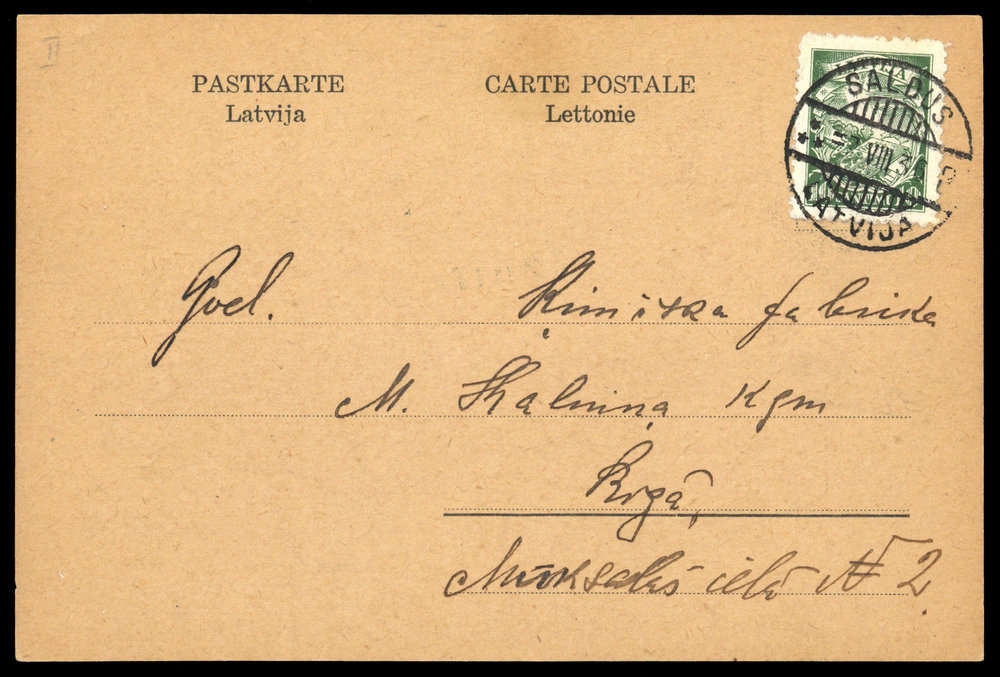 II
PASTKARTE
Latvija
CARTE POSTALE
Lettonie
LATVIJA
SALDUS
VIII 3
LATVIJA
God.
Ķimiska fabrika
M. Kalniņa Kgm
Rīgā,
Mūksalas ielā № 2